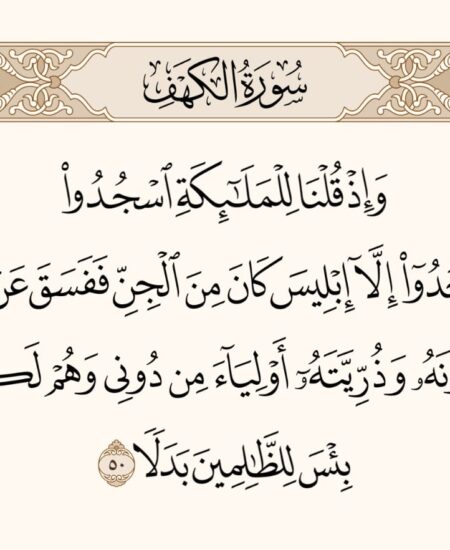 سُورَةُ الكَهْفِ
وَإِذْ قُلْنَا لِلْمَلَٰٓئِكَةِ ٱسْجُدُوا۟
إِلَّآ إِبْلِيسَ كَانَ مِنَ ٱلْجِنِّ فَفَسَقَ عَنْ
وَذُرِّيَّتَهُۥٓ أَوْلِيَآءَ مِن دُونِى وَهُمْ
بِئْسَ لِلظَّٰلِمِينَ بَدَلًا ٥٠